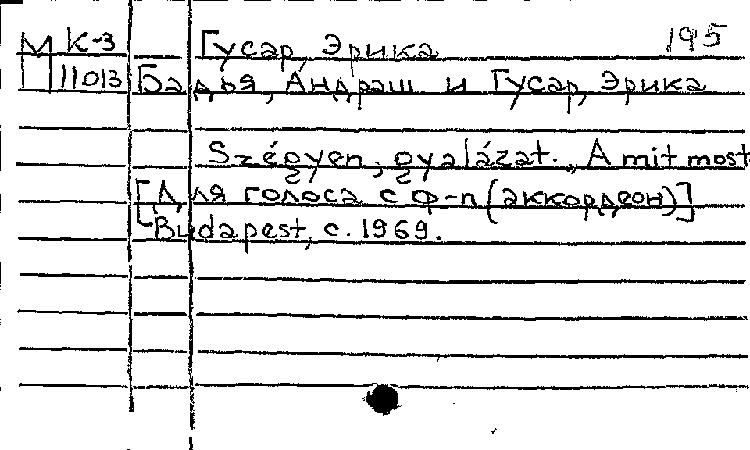 М К-3 Гусар, Эрика 195
11013 Бадья, Андраш и Гусар, Эрика
Szégyen, gyalázat. „A mit most
[Для голоса с ф-п (аккордеон)]
Budapest, c. 1969.